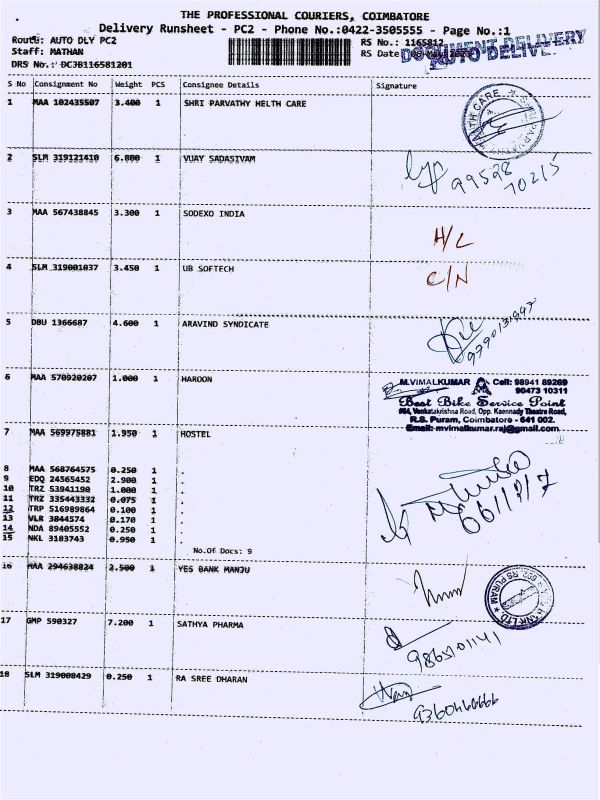 THE PROFESSIONAL COURIERS, COIMBATORE
Delivery Runsheet - PC2 - Phone No.:0422-3505555 - Page No.:1
Route: AUTO DLY PC2 RS No.: 1165812
Staff: MATHAN RS Date:
DRS No.: DC3B116581201
DOCUMENT DELIVERY
S No Consignment No Weight PCS Consignee Details Signature
1 MAA 102435507 3.400 1 SHRI PARVATHY HELTH CARE
2 SLM 319121410 6.800 1 VIJAY SADASIVAM
99598
70215
3 MAA 567438845 3.300 1 SODEXO INDIA
H/L
4 SLM 319001037 3.450 1 UB SOFTECH
C/N
5 DBU 1366687 4.600 1 ARAVIND SYNDICATE
6 MAA 570920207 1.000 1 HAROON
M.VIMALKUMAR Cell: 98941 89269
90473 10311
Best Bike Service Point
Venkatakrishna Road, Opp. Kaennady Theatre Road,
R.S. Puram, Coimbatore - 641 002.
Email: mvimalkumar.raj@gmail.com
7 MAA 569975881 1.950 1 HOSTEL
8 MAA 568764575 0.250 1 .
9 EDQ 24565452 2.900 1 .
10 TRZ 53941190 1.000 1 .
11 TRZ 335443332 0.075 1 .
12 TRP 516989864 0.100 1 .
13 VLR 3844574 0.170 1 .
14 NDA 89405552 0.250 1 .
15 NKL 3183743 0.950 1 .
No.Of Docs: 9
16 MAA 294638824 2.500 1 YES BANK MANJU
17 GMP 590327 7.200 1 SATHYA PHARMA
9865101141
18 SLM 319008429 0.250 1 RA SREE DHARAN
9360466666